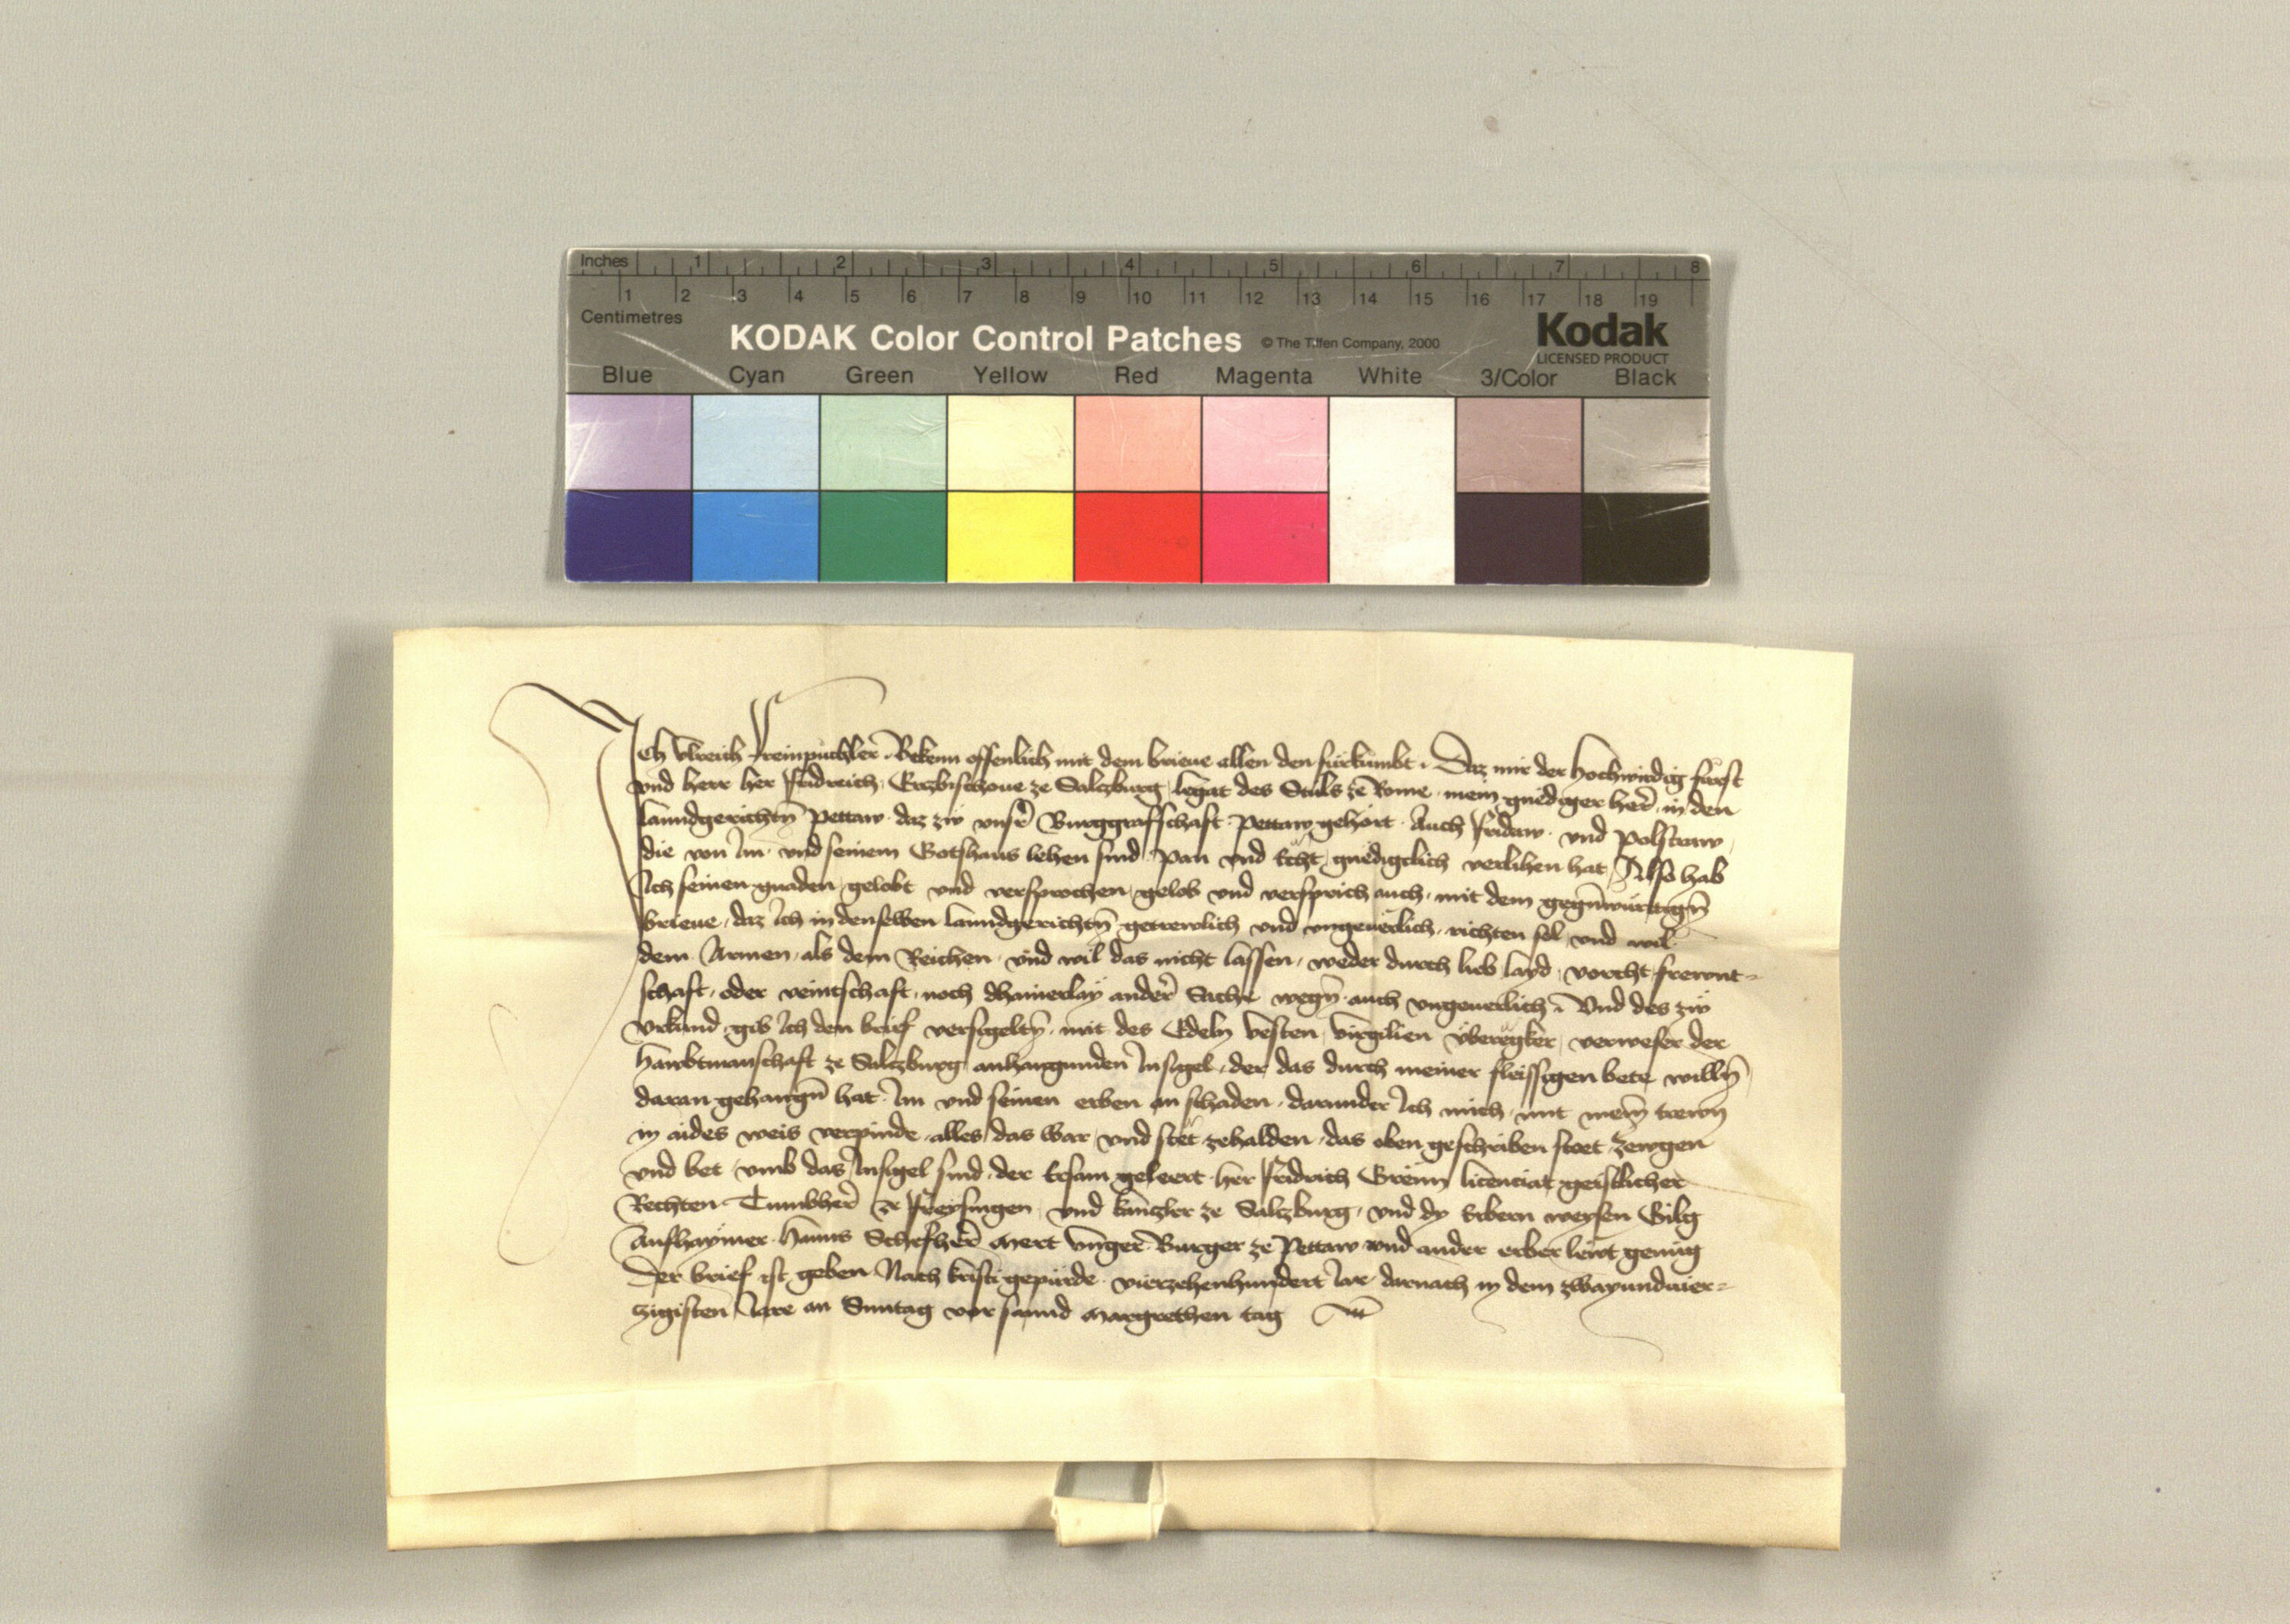 Inches 1 2 3 4 5 6 7 8
1 2 3 4 5 6 7 8 9 10 11 12 13 14 15 16 17 18 19
Centimetres
KODAK Color Control Patches © The Tiffen Company, 2000 Kodak
LICENSED PRODUCT
Blue Cyan Green Yellow Red Magenta White 3/Color Black
Ich Vlreich bekenn offenlich mit dem brieue allen den fürkumbt. Daz mir der hochwirdig fürst
vnd herr her Fridreich Erczbischoue ze Salczburg legat des Stuls ze Rome mein gnediger her in den
lanndgerichtn Pettaw daz zw vnsr Burggrafschaft Pettaw gehört. Auch Fridaw. vnd Polstraw
die von Im vnd seinem Gotshaus lehen sind Pan vnd Echt gnedigclich verlihen hat Also hab
Ich seinen gnaden gelobt vnd versprochen gelob vnd versprich auch mit dem gegnwürttign
brieue, daz Ich in denselben lanndgerichtn getrewlich vnd vngeuerlich richten sol vnd wil
dem Armen als dem Reichen vnd wil das nicht lassen, weder durch lieb layd vorcht frewnt-
schaft, oder veintschaft, noch dhainerlay ander Sache wegn auch vngeuerlich. Vnd des zw
vrkund gib Ich den brief versigeltn mit des Edeln vesten Virgilien Überegker verweser der
haubtmanschaft ze Salczburg anhangunden Insigel, der das durch meiner fleissigen bete willn
daran gehangn hat Im vnd seinen erben an schaden, darunder Ich mich mit mein trewn
in aides weis verpinde alles das war vnd stet zehalden das oben geschriben stet Zewgen
vnd bet vmb das Insigel sind der Ersam geleert her Fridrich Grenn licenciat geistlicher
Rechten Tumbher ze Freysingen vnd kanczler ze Salczburg, vnd dy Erbern weysen Gilg
Aufhaymer hanns Schefher Mert Vnger Burger ze Pettaw vnd ander erber lewt genug
Der brief ist geben Nach kristi gepurde vierzehenhundert Jar darnach in dem zwayundvier-
zigisten Jare an Sunntag vor sannd Margrethen tag